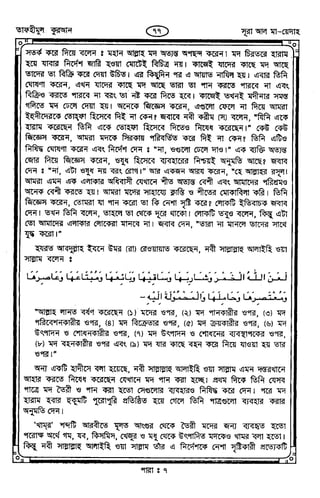 তাফহীমুল কুরআন
৭৭
সূরা আল মা-য়েদাহ
সতর্ক করে দিয়ে বলেন : মহান আল্লাহ মদ অত্যন্ত অপছন্দ করেন। মদ চিরতরে হারাম
হয়ে যাবার নির্দেশ জারি হওয়া মোটেই বিচিত্র নয়। কাজেই যাদের কাছে মদ আছে
তাদের তা বিক্রি করে দেয়া উচিত। এর কিছুদিন পর এ আয়াত নাযিল হয়। এবার তিনি
ঘোষণা করেন, এখন যাদের কাছে মদ আছে তারা তা পান করতে পারবে না এবং
বিক্রিও করতে পারবে না বরং তা নষ্ট করে দিতে হবে। কাজেই তখনই মদীনার সমস্ত
গলিতে মদ ঢেলে দেয়া হয়। অনেকে জিজ্ঞেস করেন, এগুলো ফেলে না দিয়ে আমরা
ইহুদীদেরকে তোহফা হিসেবে দিই না কেন? জবাবে নবী করীম (সা) বলেন, "যিনি একে
হারাম করেছেন তিনি একে তোহফা হিসেবে দিতেও নিষেধ করেছেন।" কেউ কেউ
জিজ্ঞেস করেন, আমরা মদকে সিরকায় পরিবর্তিত করে দিই না কেন? তিনি এটিও
নিষিদ্ধ ঘোষণা করেন এবং নির্দেশ দেন : "না, ওগুলো ঢেলে দাও।" এক ব্যক্তি অত্যন্ত
জোর দিয়ে জিজ্ঞেস করেন, ওষুধ হিসেবে ব্যবহারের নিশ্চয়ই অনুমতি আছে? জবাব
দেন : "না, এটা ওষুধ নয় বরং রোগ।" আর একজন আরয করেন, "হে আল্লাহর রসূল!
আমরা এমন এক এলাকার অধিবাসী যেখানে শীত অত্যন্ত বেশী এবং আমাদের পরিশ্রমও
অনেক বেশী করতে হয়। আমরা মদের সাহায্যে ক্লান্তি ও শীতের মোকাবিলা করি। তিনি
জিজ্ঞেস করেন, তোমরা যা পান করো তা কি নেশা সৃষ্টি করে? লোকটি ইতিবাচক জবাব
দেন। তখন তিনি বলেন, তাহলে তা থেকে দূরে থাকো। লোকটি তবুও বলেন, কিন্তু এটা
তো আমাদের এলাকার লোকেরা মানবে না। জবাব দেন, "তারা না মানলে তাদের সাথে
যুদ্ধ করো।"
হযরত আবদুল্লাহ ইবনে উমর (রা) রেওয়ায়াত করেছেন, নবী সাল্লাল্লাহু আলাইহি ওয়া
সাল্লাম বলেন :
لعن الله الخمر وشاربها وساقيها وبائعها ومبتاعها وعاصرها
ومعتصرها وحاملها والمحمولة اليه-
"আল্লাহ লানত বর্ষণ করেছেন (১) মদের ওপর, (২) মদ পানকারীর ওপর, (৩) মদ
পরিবেশনকারীর ওপর, (৪) মদ বিক্রেতার ওপর, (৫) মদ ক্রয়কারীর ওপর, (৬) মদ
উৎপাদন ও শোধনকারীর ওপর, (৭) মদ উৎপাদন ও শোধনের ব্যবস্থাপকের ওপর,
(৮) মদ বহনকারীর ওপর এবং (৯) মদ যার কাছে বহন করে নিয়ে যাওয়া হয় তার
ওপর।"
অন্য একটি হাদীসে বলা হয়েছে, নবী সাল্লাল্লাহু আলাইহি ওয়া সাল্লাম এমন দস্তরখানে
আহার করতে নিষেধ করেছেন যেখানে মদ পান করা হচ্ছে। প্রথম দিকে তিনি যেসব
পাত্রে মদ তৈরী ও পান করা হতো সেগুলোর ব্যবহারও নিষিদ্ধ করে দেন। পরে মদ
হারাম হবার হুকুমটি পুরোপুরি প্রতিষ্ঠিত হয়ে গেলে তিনি পাত্রগুলো ব্যবহার করার
অনুমতি দেন।
'খামর' শব্দটি আরবীতে মূলত আংগুর থেকে তৈরী মদের জন্য ব্যবহৃত হতো
পরোক্ষ অর্থে গম, যব, কিসমিস, খেজুর ও মধু থেকে উৎপাদিত মদকেও খামর বলা হতো।
কিন্তু নবী সাল্লাল্লাহু আলাইহি ওয়া সাল্লাম তাঁর এ নির্দেশকে নেশা সৃষ্টিকারী প্রত্যেকটি
পারা : ৭